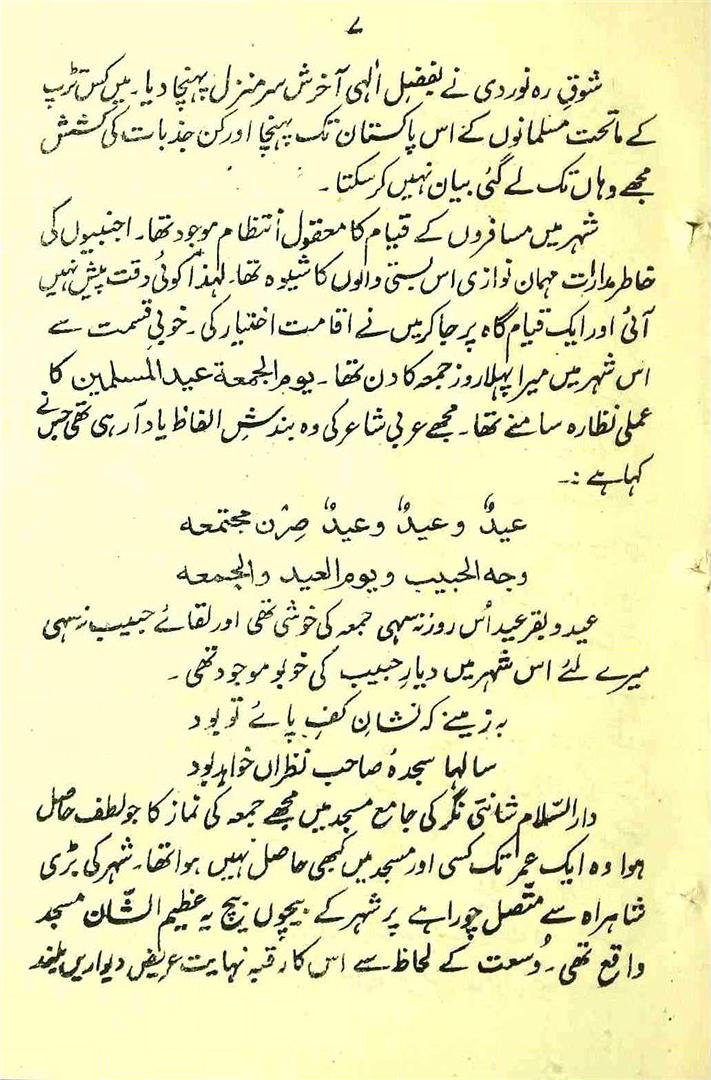 ۷
شوقِ رہ نوردی نے بفضلِ الٰہی آخرش سرِ منزل پہنچا دیا۔ میں کس تڑپ
کے ماتحت مسلمانوں کے اس پاکستان تک پہنچا اور کن جذبات کی کشش
مجھے وہاں تک لے گئی بیان نہیں کر سکتا۔
شہر میں مسافروں کے قیام کا معقول انتظام موجود تھا۔ اجنبیوں کی
خاطر مدارات مہمان نوازی اس بستی والوں کا شیوہ تھا۔ لہٰذا کوئی دقت پیش نہیں
آئی اور ایک قیام گاہ پر جا کر میں نے اقامت اختیار کی۔ خوبی قسمت سے
اس شہر میں میرا پہلا روز جمعہ کا دن تھا۔ یوم الجمعة عید المسلمین کا
عملی نظارہ سامنے تھا۔ مجھے عربی شاعر کی وہ بندشِ الفاظ یاد آ رہی تھی جس نے
کہا ہے :۔
عیدٌ و عیدٌ و عیدٌ صِرْن مجتمعه
وجه الحبیب و یوم العید والجمعه
عید و بقر عید اُس روز نہ سہی جمعہ کی خوشی تھی اور لقائے حبیب نہ سہی
میرے لئے اس شہر میں دیارِ حبیب کی خوبو موجود تھی۔
بہ زمینے کہ نشانِ کفِ پائے تو بود
سالہا سجدۂ صاحب نظراں خواہد بود
دار السّلام شانتی نگر کی جامع مسجد میں مجھے جمعہ کی نماز کا جو لطف حاصل
ہوا وہ ایک عمر تک کسی اور مسجد میں کبھی حاصل نہیں ہوا تھا۔ شہر کی بڑی
شاہراہ سے متّصل چوراہے پر شہر کے بیچوں بیچ یہ عظیم الشّان مسجد
واقع تھی۔ وُسعت کے لحاظ سے اس کا رقبہ نہایت عریض دیواریں بلند